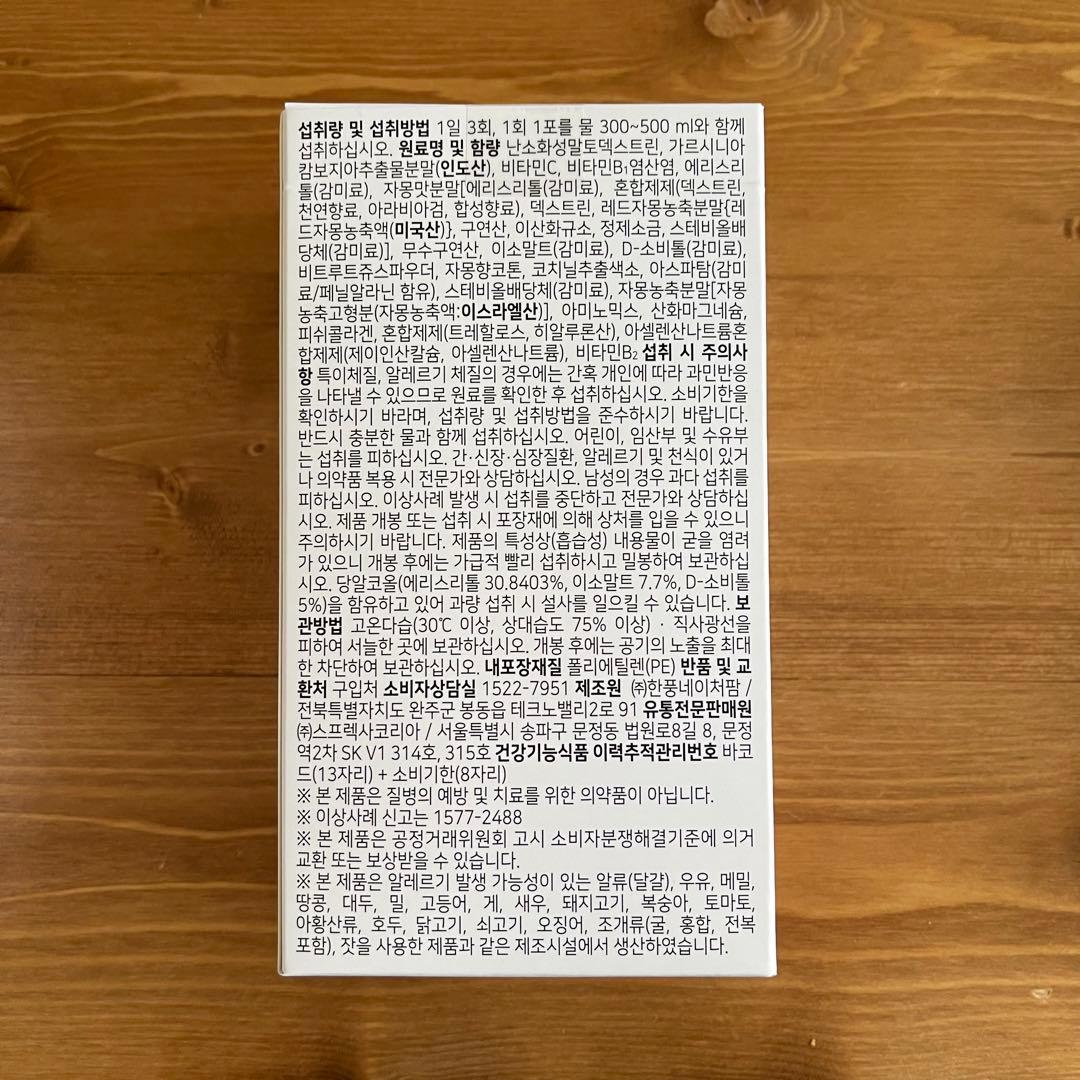 섭취량 및 섭취방법 1일 3회, 1회 1포를 물 300~500 ml와 함께
섭취하십시오. 원료명 및 함량 난소화성말토덱스트린, 가르시니아
캄보지아추출물분말(인도산), 비타민C, 비타민B₁염산염, 에리스리
톨(감미료), 자몽맛분말[에리스리톨(감미료), 혼합제제(덱스트린,
천연향료, 아라비아검, 합성향료), 덱스트린, 레드자몽농축분말{레
드자몽농축액(미국산)}, 구연산, 이산화규소, 정제소금, 스테비올배
당체(감미료)], 무수구연산, 이소말트(감미료), D-소비톨(감미료),
비트루트쥬스파우더, 자몽향코튼, 코치닐추출색소, 아스파탐(감미
료/페닐알라닌 함유), 스테비올배당체(감미료), 자몽농축분말[자몽
농축고형분(자몽농축액:이스라엘산)], 아미노믹스, 산화마그네슘,
피쉬콜라겐, 혼합제제(트레할로스, 히알루론산), 아셀렌산나트륨혼
합제제(제이인산칼슘, 아셀렌산나트륨), 비타민B₂ 섭취 시 주의사
항 특이체질, 알레르기 체질의 경우에는 간혹 개인에 따라 과민반응
을 나타낼 수 있으므로 원료를 확인한 후 섭취하십시오. 소비기한을
확인하시기 바라며, 섭취량 및 섭취방법을 준수하시기 바랍니다.
반드시 충분한 물과 함께 섭취하십시오. 어린이, 임산부 및 수유부
는 섭취를 피하십시오. 간·신장·심장질환, 알레르기 및 천식이 있거
나 의약품 복용 시 전문가와 상담하십시오. 남성의 경우 과다 섭취를
피하십시오. 이상사례 발생 시 섭취를 중단하고 전문가와 상담하십
시오. 제품 개봉 또는 섭취 시 포장재에 의해 상처를 입을 수 있으니
주의하시기 바랍니다. 제품의 특성상(흡습성) 내용물이 굳을 염려
가 있으니 개봉 후에는 가급적 빨리 섭취하시고 밀봉하여 보관하십
시오. 당알코올(에리스리톨 30.8403%, 이소말트 7.7%, D-소비톨
5%)을 함유하고 있어 과량 섭취 시 설사를 일으킬 수 있습니다. 보
관방법 고온다습(30℃ 이상, 상대습도 75% 이상) · 직사광선을
피하여 서늘한 곳에 보관하십시오. 개봉 후에는 공기의 노출을 최대
한 차단하여 보관하십시오. 내포장재질 폴리에틸렌(PE) 반품 및 교
환처 구입처 소비자상담실 1522-7951 제조원 ㈜한풍네이처팜 /
전북특별자치도 완주군 봉동읍 테크노밸리2로 91 유통전문판매원
㈜스프렉사코리아 / 서울특별시 송파구 문정동 법원로8길 8, 문정
역2차 SK V1 314호, 315호 건강기능식품 이력추적관리번호 바코
드(13자리) + 소비기한(8자리)
※ 본 제품은 질병의 예방 및 치료를 위한 의약품이 아닙니다.
※ 이상사례 신고는 1577-2488
※ 본 제품은 공정거래위원회 고시 소비자분쟁해결기준에 의거
교환 또는 보상받을 수 있습니다.
※ 본 제품은 알레르기 발생 가능성이 있는 알류(달걀), 우유, 메밀,
땅콩, 대두, 밀, 고등어, 게, 새우, 돼지고기, 복숭아, 토마토,
아황산류, 호두, 닭고기, 쇠고기, 오징어, 조개류(굴, 홍합, 전복
포함), 잣을 사용한 제품과 같은 제조시설에서 생산하였습니다.